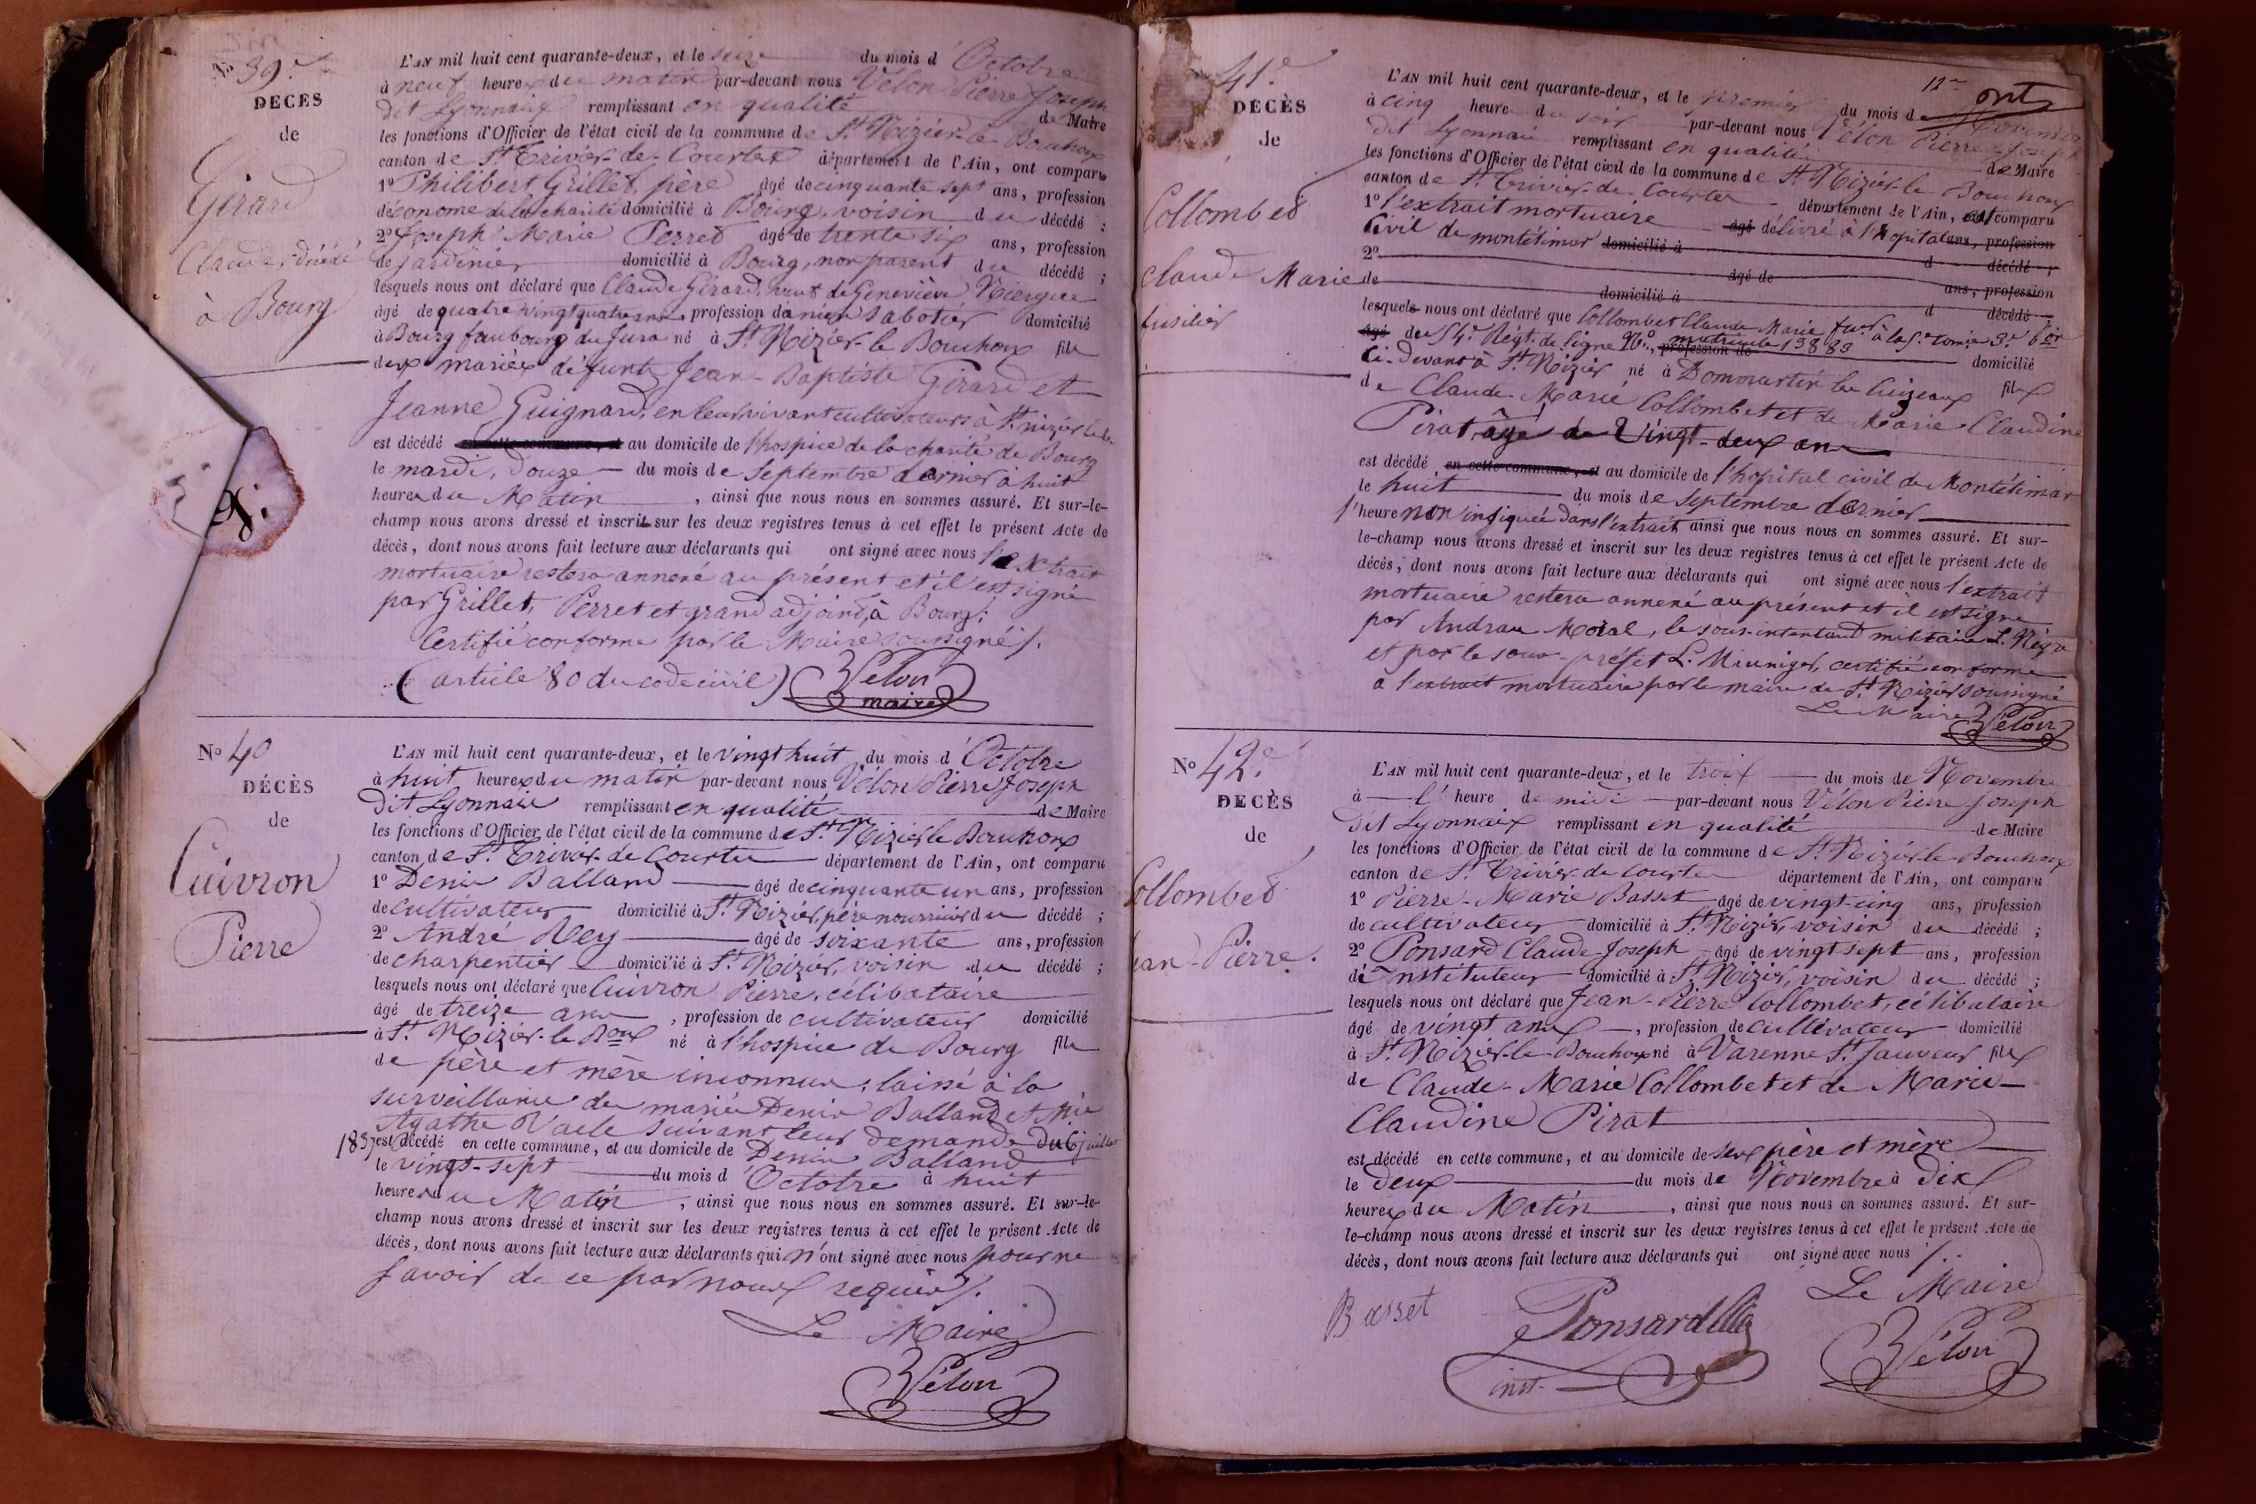 No 39.e
DECES
de
Girard
Claude, décédé
à Bourg
L'AN mil huit cent quarante-deux, et le seize du mois d'Octobre
à neuf heures du matin par-devant nous Vélon Pierre Joseph
dit Lyonnais remplissant en qualité de Maire
les fonctions d'Officier de l'état civil de la commune de St Nizier-le-Bouhoux
canton de St Trivier-de-Courtes département de l'Ain, ont comparu
1o Philibert Grillet, père âgé de cinquante sept ans, profession
d'économe de la charité domicilié à Bourg, voisin du décédé ;
2o Joseph Marie Perret âgé de trente six ans, profession
de jardinier domicilié à Bourg, non parent du décédé ;
lesquels nous ont déclaré que Claude Girard, veuf de Geneviève
âgé de quatre vingt quatre ans, profession d'ancien sabotier domicilié
à Bourg faubourg du Jura né à St Nizier-le Bouhoux fils
des mariés défunts Jean-Baptiste Girard et
Jeanne Guignard, en leur vivant cultivateurs à St nizier
est décédé en cette commune, et au domicile de l'hospice de la charité de Bourg
le mardi, douze du mois de Septembre dernier à huit
heures du Matin, ainsi que nous nous en sommes assuré. Et sur-le-
champ nous avons dressé et inscrit sur les deux registres tenus à cet effet le présent Acte de
décès, dont nous avons fait lecture aux déclarants qui ont signé avec nous l'extrait
mortuaire restera annexé au présent et il est signé
par Grillet, Perret et grand adjoint, à Bourg.
Certifié conforme par le Maire soussigné ./.
(article 80 du code civil) Vélon
maire
No 40
DÉCÈS
de
Cuivron
Pierre
L'AN mil huit cent quarante-deux, et le vingt huit du mois d'Octobre
à huit heures du matin par-devant nous Vélon Pierre Joseph
Dit Lyonnais remplissant en qualité de Maire
les fonctions d'Officier de l'état civil de la commune de St Nizier le Bouhoux
canton de St Trivier-de Courtes département de l'Ain, ont comparu
1o Denis Balland âgé de cinquante un ans, profession
de cultivateur domicilié à St Nizier, père nourricier du décédé ;
2o André Rey âgé de soixante ans, profession
de charpentier domicilié à St Nizier, voisin du décédé ;
lesquels nous ont déclaré que Cuivron Pierre, célibataire
âgé de treize ans, profession de cultivateur domicilié
à St Nizier-le Boux né à l'hospice de Bourg fils
de père et mère inconnus ; laissé à la
surveillance des mariés Denis Balland et Mie
Agathe suivant leur demande du 6 juillet
1837 est décédé en cette commune, et au domicile de Denis Balland
le vingt-sept du mois d'Octobre à huit
heures du Matin, ainsi que nous nous en sommes assuré. Et sur-le-
champ nous avons dressé et inscrit sur les deux registres tenus à cet effet le présent Acte de
décès, dont nous avons fait lecture aux déclarants qui n'ont signé avec nous pour ne
savoir de ce par nous requis ./.
Le Maire
Vélon
41.e
DÉCÈS
de
Collombet
Claude Marie
fusilier
11e
L'AN mil huit cent quarante-deux, et le premier du mois de Novembre
à cinq heure du soir par-devant nous Vélon Pierre Joseph
dit Lyonnais remplissant en qualité de Maire
les fonctions d'Officier de l'état civil de la commune de St Nizier-le Bouhoux
canton de St Trivier-de-Courtes département de l'Ain, est comparu
1o l'extrait mortuaire âgé délivré à l'hopital ans, profession
Civil de montélimar domicilié à d décédé ;
2o âgé de ans, profession
de domicilié à d décédé
lesquels nous ont déclaré que Collombet Claude Marie à la 5e 3e
âgé de 54e Régt de ligne No matricule 13883 profession de domicilié
Ci-Devant à St Nizier né à Domsurtin les Cuizeaux fils
de Claude-Marie Collombet et de Marie Claudine
Pirat, âgé de Vingt-deux ans
est décédé en cette commune, et au domicile de l'hopital civil de Montélimar
le huit du mois de Septembre dernier
l'heure non indiquée dans l'extrait ainsi que nous nous en sommes assuré. Et sur-
le-champ nous avons dressé et inscrit sur les deux registres tenus à cet effet le présent Acte de
décès, dont nous avons fait lecture aux déclarants qui ont signé avec nous l'extrait
mortuaire restera annexé au présent et il est signé
par Andrau Moral, le sous-intendant militaire
et par le sous-préfet certifié conforme
à l'extrait mortuaire par le maire de St Nizier soussigné
Le Maire Vélon
No 42.e
DÉCÈS
de
Collombet
Jean-Pierre.
L'AN mil huit cent quarante-deux, et le trois du mois de Novembre
à l' heure de midi par-devant nous Vélon Pierre Joseph
dit Lyonnais remplissant en qualité de Maire
les fonctions d'Officier de l'état civil de la commune de St Nizier-le-Bouhoux
canton de St Trivier-de courtes département de l'Ain, ont comparu
1o Pierre-Marie Basset âgé de vingt-cinq ans, profession
de cultivateur domicilié à St Nizier, voisin du décédé ;
2o Ponsard Claude Joseph âgé de vingt sept ans, profession
d'Instituteur domicilié à St Nizier, voisin du décédé ;
lesquels nous ont déclaré que Jean-Pierre Collombet, célibataire
âgé de vingt ans, profession de cultivateur domicilié
à St Nizier-le-Bouhoux né à Varenne St Sauveur fils
de Claude-Marie Collombet et de Marie-
Claudine Pirat
est décédé en cette commune, et au domicile de ses père et mère
le deux du mois de Novembre à dix
heures du Matin, ainsi que nous nous en sommes assuré. Et sur-
le-champ nous avons dressé et inscrit sur les deux registres tenus à cet effet le présent Acte de
décès, dont nous avons fait lecture aux déclarants qui ont signé avec nous ./.
Le Maire
Basset
Ponsard
inst.
Vélon